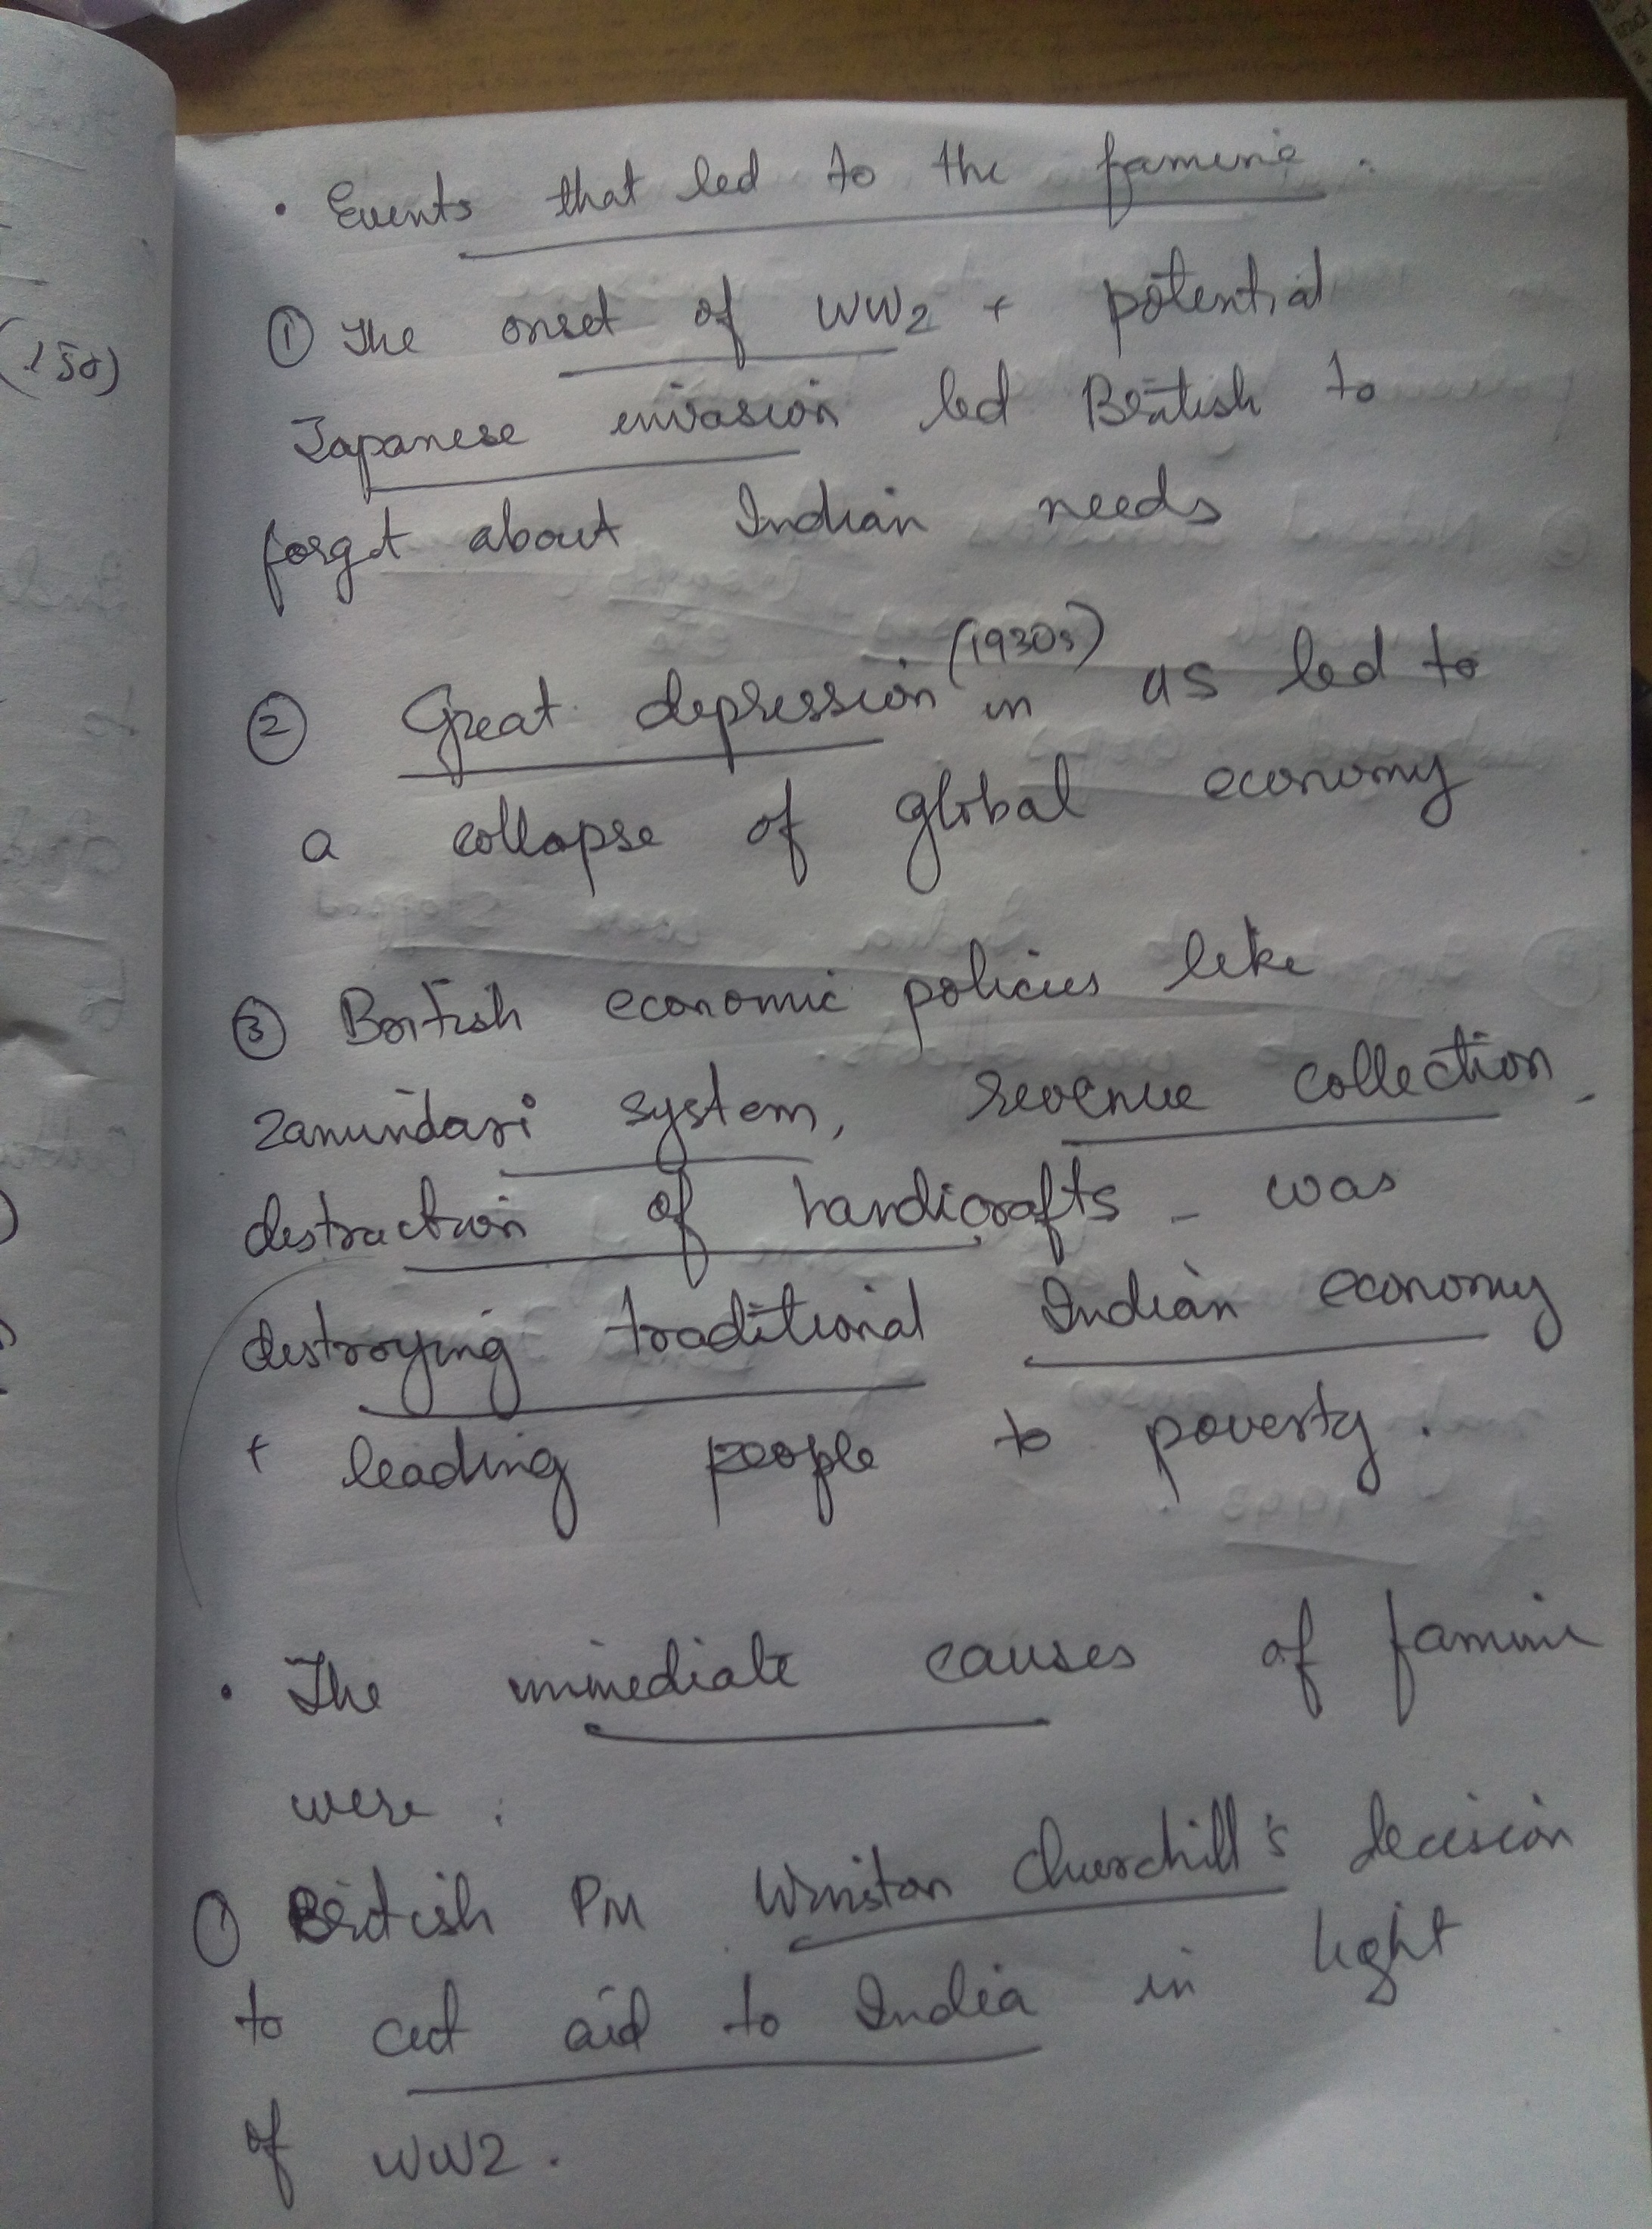 (150)
• Events that led to the famine.
① The onset of WW2 + potential
Japanese invasion led British to
forget about Indian needs
② Great depression (1930s) in US led to
a collapse of global economy
③ British economic policies like
zamindari system, revenue collection,
destruction of handicrafts - was
destroying traditional Indian economy
+ leading people to poverty.
• The immediate causes of famine
were :
① British PM Winston Churchill's decision
to cut aid to India in light
of WW2.